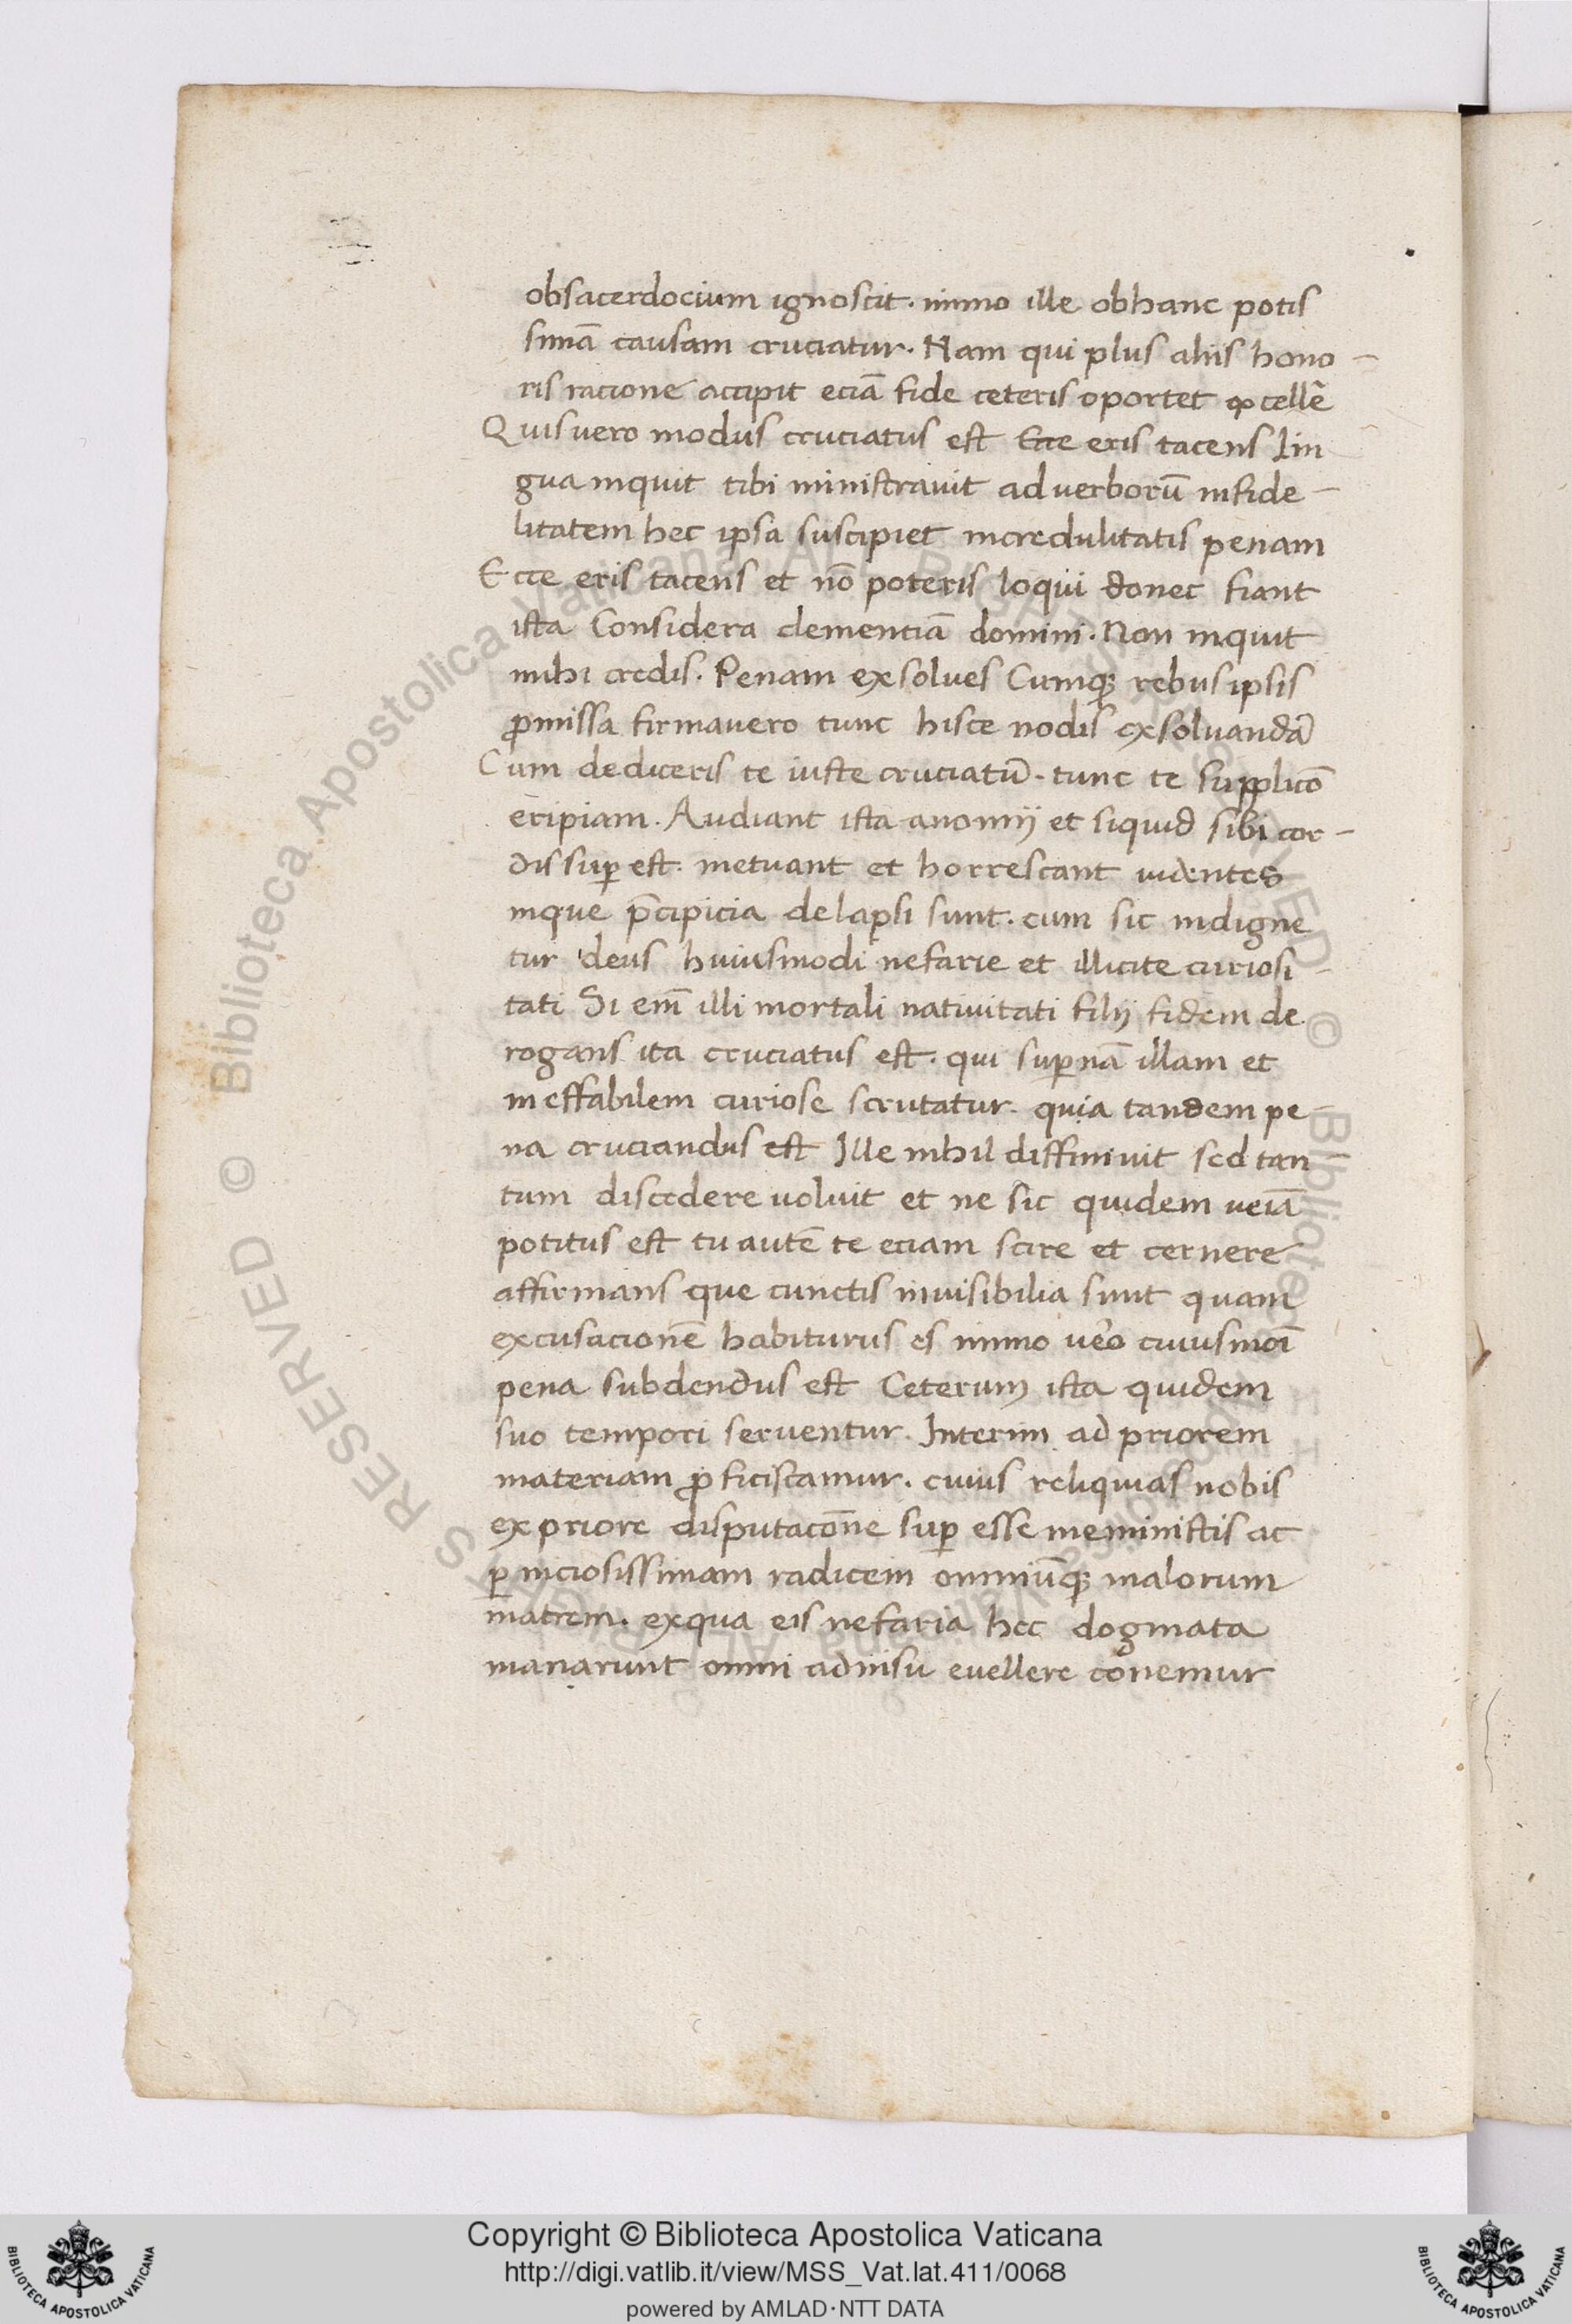 obsacerdocium ignoscit. immo ille obhanc potis
simā causam cruciatur. Nam qui plus aliis hono-
ris racione accipit eciā fide ceteris oportet p̄cellē
Quis uero modus cruciatus est Ecce eris tacens Lin
gua inquit tibi ministravit ad verborū infide-
litatem hec ipsa suscipiet incredulitatis penam
Ecce eris tacens et nō poteris loqui donec fiant
ista Considera clementiā domini. Non inquit
mihi credis. Penam exsolues Cumqꝫ rebus ipsis
ꝓmissa firmauero tunc hisce nodis exsoluandā
Cum dediceris te iuste cruciatū. tunc te supplicō
eripiam. Audiant ista anomij et siquid sibi cor-
dis suꝑ est. metuant et horrescant uidentes
inque p̄cipicia delapsi sunt. cum sic indigne
tur deus huiusmodi nefarie et illicite curiosi-
tati Si em̄ illi mortali nativitati filij fidem de
rogans ita cruciatus est. qui suꝑnā illam et
ineffabilem curiose scrutatur. quia tandem pe-
na cruciandus est Ille nihil diffinivit sed tan-
tum discedere voluit et ne sic quidem ueiā
potitus est tu autē te eciam scire et cernere
affirmans que cunctis invisibilia sunt quam
excusacionē habiturus es immo ueo cuiusmoī
pena subdendus est Ceterum ista quidem
suo tempori serventur. Interim ad priorem
materiam ꝓficiscamur. cuius reliquias nobis
ex priore disputacōne suꝑ esse meministis ac
ꝑniciosissimam radicem omniūqꝫ malorum
matrem. exqua eis nefaria hec dogmata
manarunt omni adnisu evellere conemur
Copyright © Biblioteca Apostolica Vaticana
http://digi.vatlib.it/view/MSS_Vat.lat.411/0068
powered by AMLAD·NTT DATA